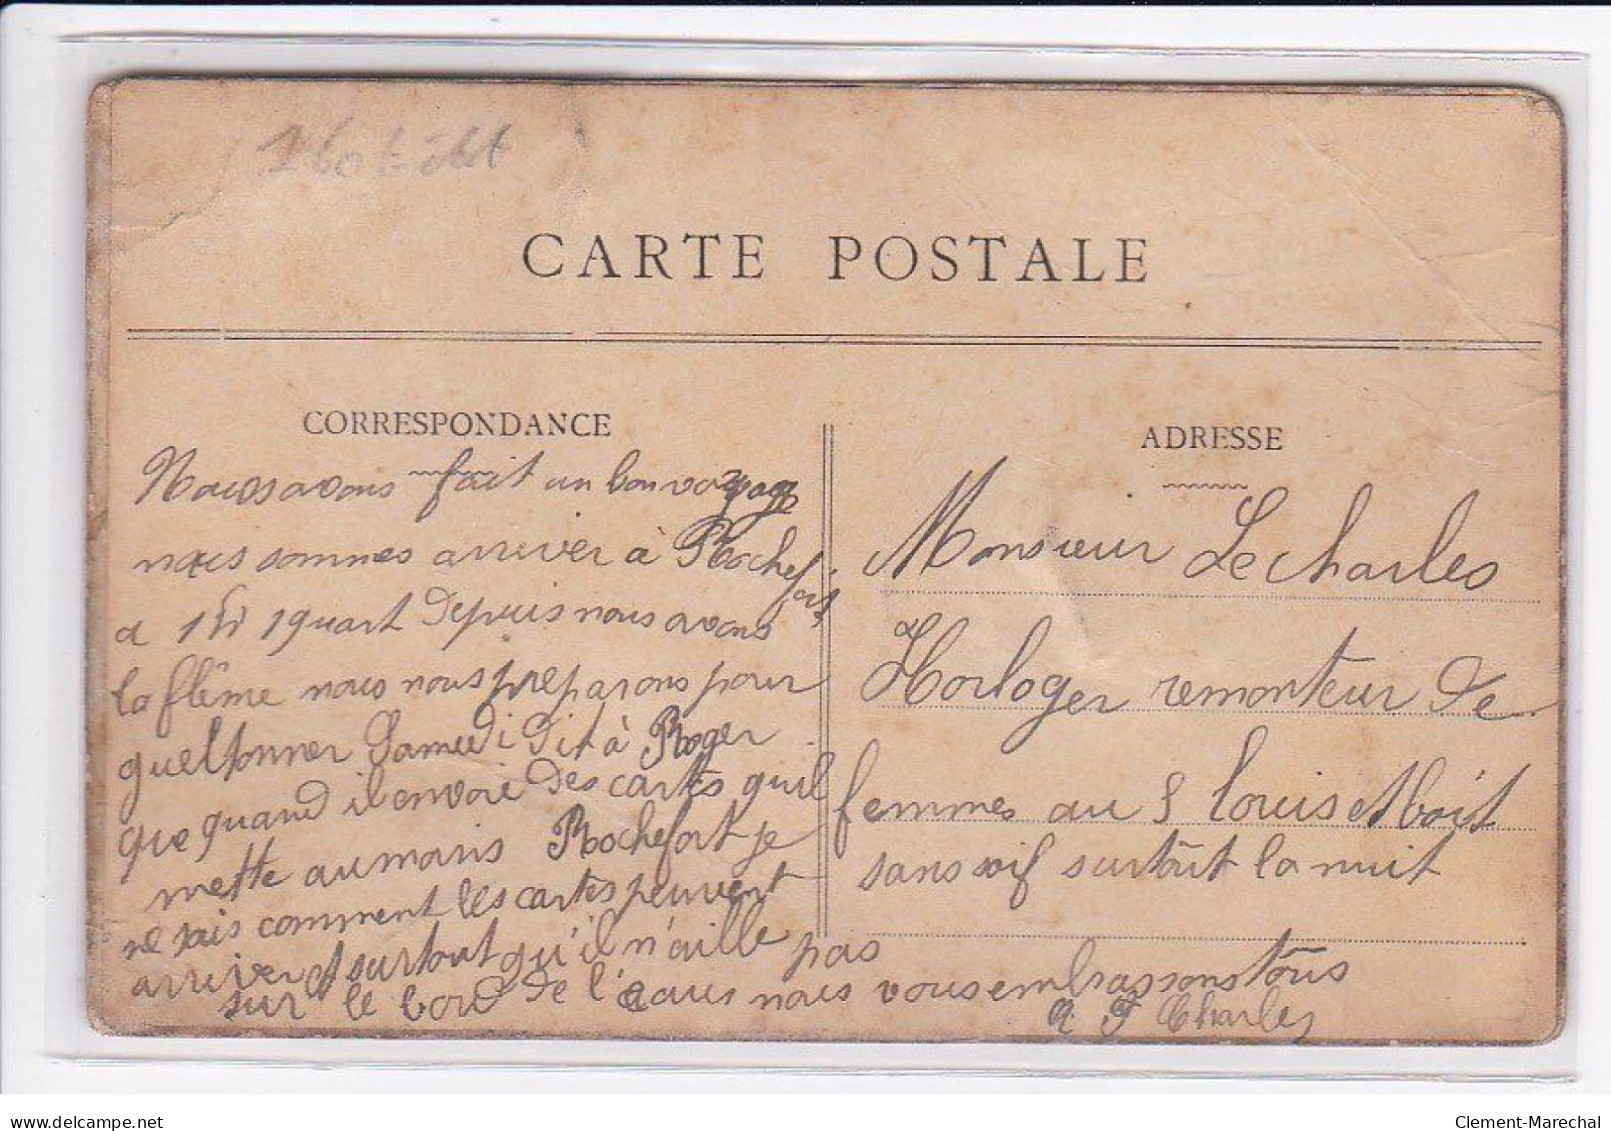 CARTE POSTALE
CORRESPONDANCE
Nous avons fait un bon voyage
nous sommes arriver à Rochefort
a 1 h 1 quart depuis nous avons
la flême nous nous préparons pour
quel tonner Samedi dit à Roger
que quand il envoie des cartes qu'il
mette au moins Rochefort je
ne sais comment les cartes peuvent
arriver et surtout qu'il n'aille pas
sur le bord de l'eau nous vous embrassons tous
A. F Charles
ADRESSE
Monsieur Le Charles
Horloger remonteur de
femmes au S Louis et boit
sans soif surtout la nuit
Clement-Marechal